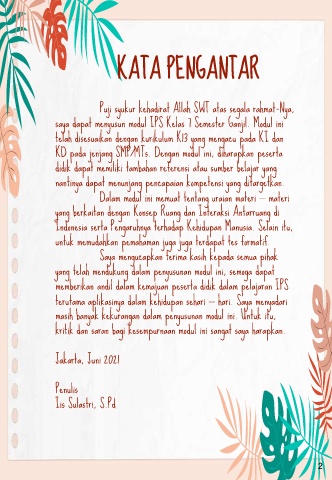 KATA PENGANTAR
Puji syukur kehadirat Allah SWT atas segala rahmat-Nya,
saya dapat menyusun modul IPS Kelas 7 Semester Ganjil. Modul ini
telah disesuaikan dengan kurikulum K13 yang mengacu pada KI dan
KD pada jenjang SMP/MTs. Dengan modul ini, diharapkan peserta
didik dapat memiliki tambahan referensi atau sumber belajar yang
nantinya dapat menunjang pencapaian kompetensi yang ditargetkan.
Dalam modul ini memuat tentang uraian materi – materi
yang berkaitan dengan Konsep Ruang dan Interaksi Antarruang di
Indonesia serta Pengaruhnya terhadap Kehidupan Manusia. Selain itu,
untuk memudahkan pemahaman juga juga terdapat tes formatif.
Saya mengucapkan terima kasih kepada semua pihak
yang telah mendukung dalam penyusunan modul ini, semoga dapat
memberikan andil dalam kemajuan peserta didik dalam pelajaran IPS
terutama aplikasinya dalam kehidupan sehari – hari. Saya menyadari
masih banyak kekurangan dalam penyusunan modul ini. Untuk itu,
kritik dan saran bagi kesempurnaan modul ini sangat saya harapkan.
Jakarta, Juni 2021
Penulis
Iis Sulastri, S.Pd
2